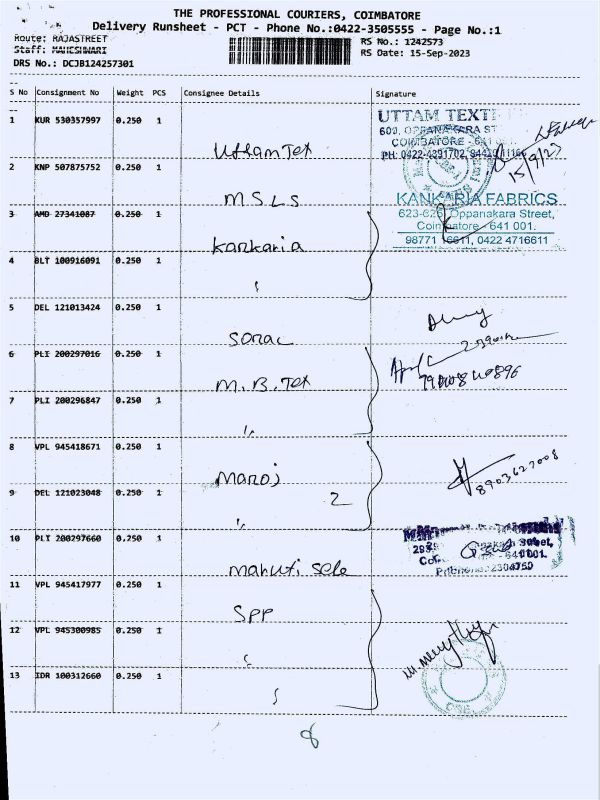 THE PROFESSIONAL COURIERS, COIMBATORE
Delivery Runsheet - PCT - Phone No.:0422-3505555 - Page No.:1
Route: RAJASTREET RS No.: 1242573
Staff: MAHESHWARI RS Date: 15-Sep-2023
DRS No.: DCJB124257301
S No Consignment No Weight PCS Consignee Details Signature
1 KUR 530357997 0.250 1 Uttam Tex
UTTAM TEXTI
600, OPPANAKARA ST
COIMBATORE - 641
PH: 0422-4391702,
15/9/23
2 KNP 507875752 0.250 1 M S L S
KANKARIA FABRICS
623-626, Oppanakara Street,
Coimbatore - 641 001.
98771 16611, 0422 4716611
3 AMD 27341087 0.250 1 Kankaria
4 BLT 100916091 0.250 1
5 DEL 121013424 0.250 1 Sonal
6 PLI 200297016 0.250 1 M. B. Tex
7 PLI 200296847 0.250 1 "
8 VPL 945418671 0.250 1 Manoj
8903627008
9 DEL 121023048 0.250 1 " 2
10 PLI 200297660 0.250 1 Maruti Sele
11 VPL 945417977 0.250 1 SPP
12 VPL 945300985 0.250 1
13 IDR 100312660 0.250 1
8